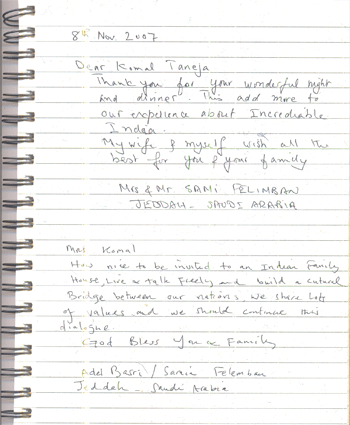 8th Nov 2007
Dear Komal Taneja
Thank you for your wonderful night
and dinner. This add more to
our experience about Increadiable
Indaa.
My wife & myself wish all the
best for you & your family
Mrs & Mr. SAMI FELIMBAN
JEDDAH - SAUDI ARABIA
Mrs. Komal
How nice to be invited to an Indian Family
House, Live & talk Freely and build a cutural
Bridge between our nations, we share lots
of values and we should continue this
dialogue.
God Bless You & Family
Adel Basri / Samia Felemban
Jeddah - Saudi Arabia